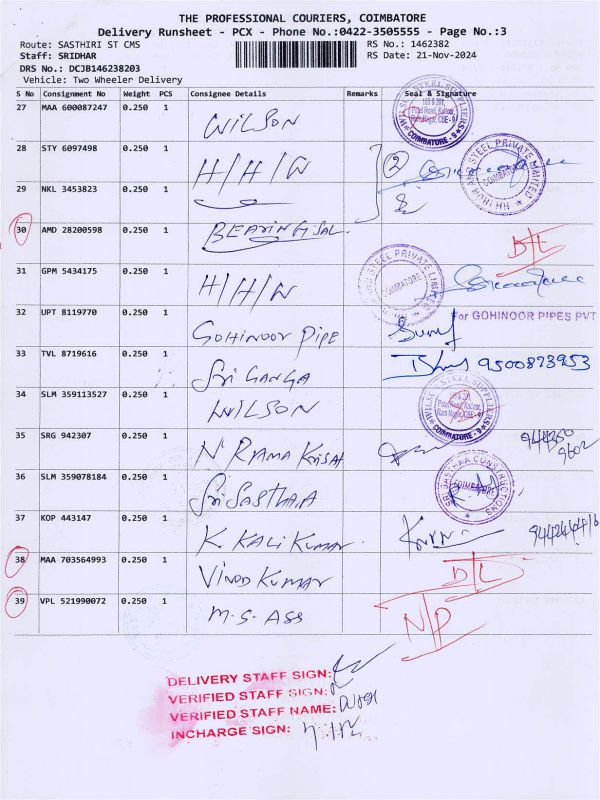 THE PROFESSIONAL COURIERS, COIMBATORE
Delivery Runsheet - PCX - Phone No.:0422-3505555 - Page No.:3
Route: SASTHIRI ST CMS RS No.: 1462382
Staff: SRIDHAR RS Date: 21-Nov-2024
DRS No.: DCJB146238203
Vehicle: Two Wheeler Delivery
S No Consignment No Weight PCS Consignee Details Remarks Seal & Signature
27 MAA 600087247 0.250 1 WILSON
28 STY 6097498 0.250 1 H/H/W 2
29 NKL 3453823 0.250 1
30 AMD 28200598 0.250 1 D/L
31 GPM 5434175 0.250 1 H/H/W
32 UPT 8119770 0.250 1 GOHINOOR PIPE For GOHINOOR PIPES PVT
33 TVL 8719616 0.250 1 Sri GANGA 9500873953
34 SLM 359113527 0.250 1 WILSON
35 SRG 942307 0.250 1 N RAMA
36 SLM 359078184 0.250 1 Sri SASTHAA
37 KOP 443147 0.250 1 K. KALI KUMAR
38 MAA 703564993 0.250 1 VINOD KUMAR D/L
39 VPL 521990072 0.250 1 M.S. ASS N/P
DELIVERY STAFF SIGN:
VERIFIED STAFF SIGN:
VERIFIED STAFF NAME:
INCHARGE SIGN: